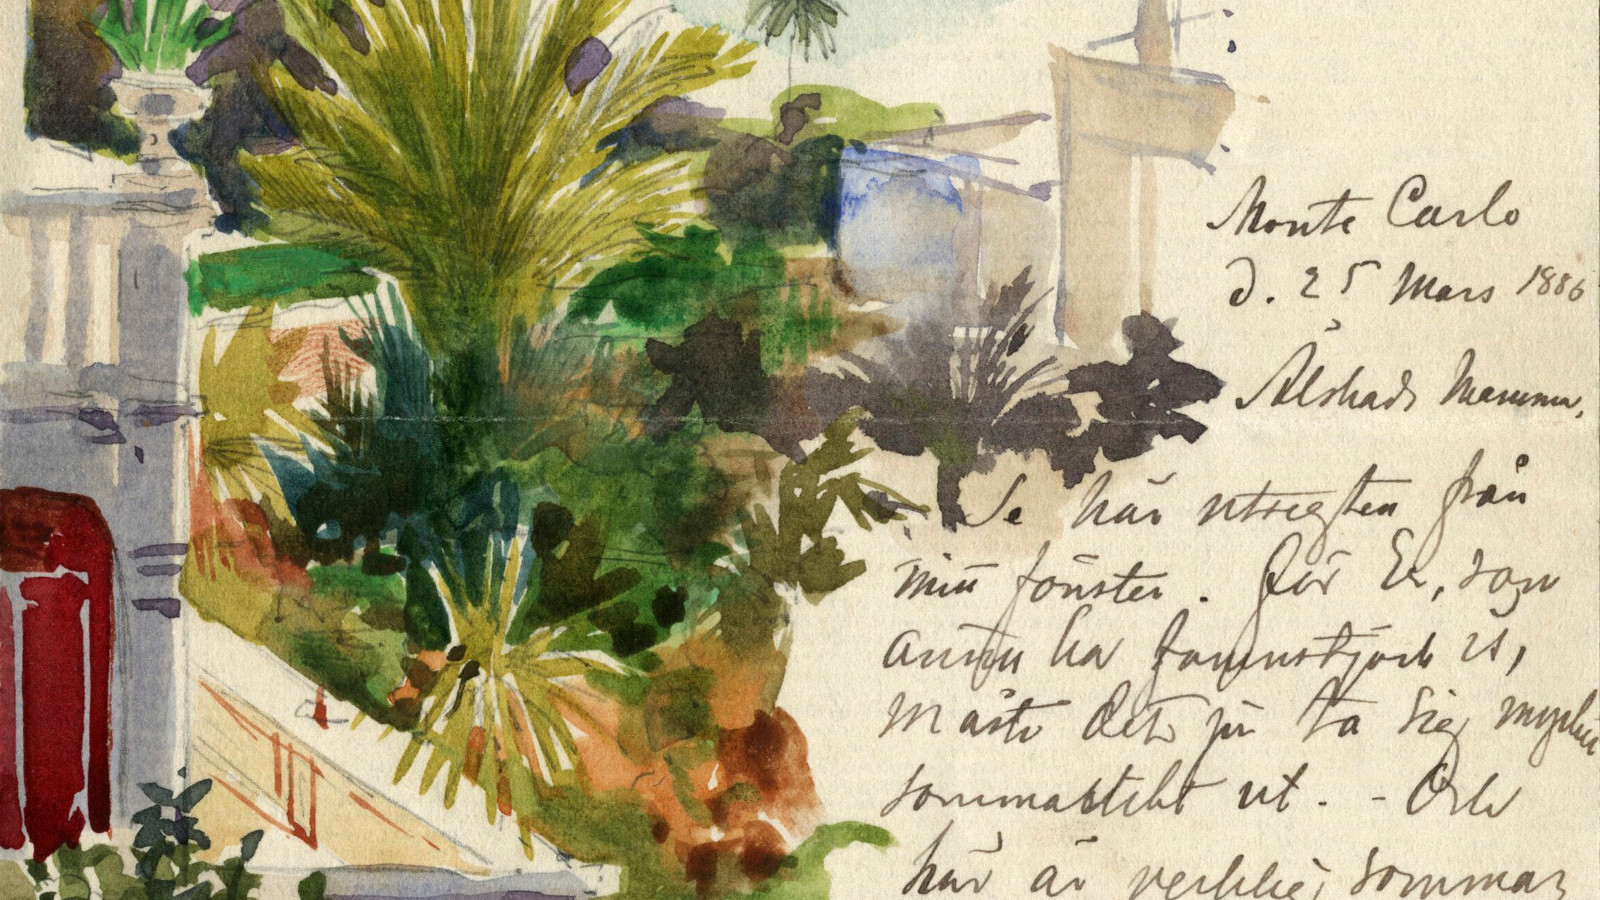 Monte Carlo
d. 25 Mars 1886
Älskade Mamma,
Se här utsigten från
mitt fönster. För Er, som
ännu ha famnstjock is,
måste det ju ta sig mycket
sommarlikt ut. - Och
här är verklig sommar